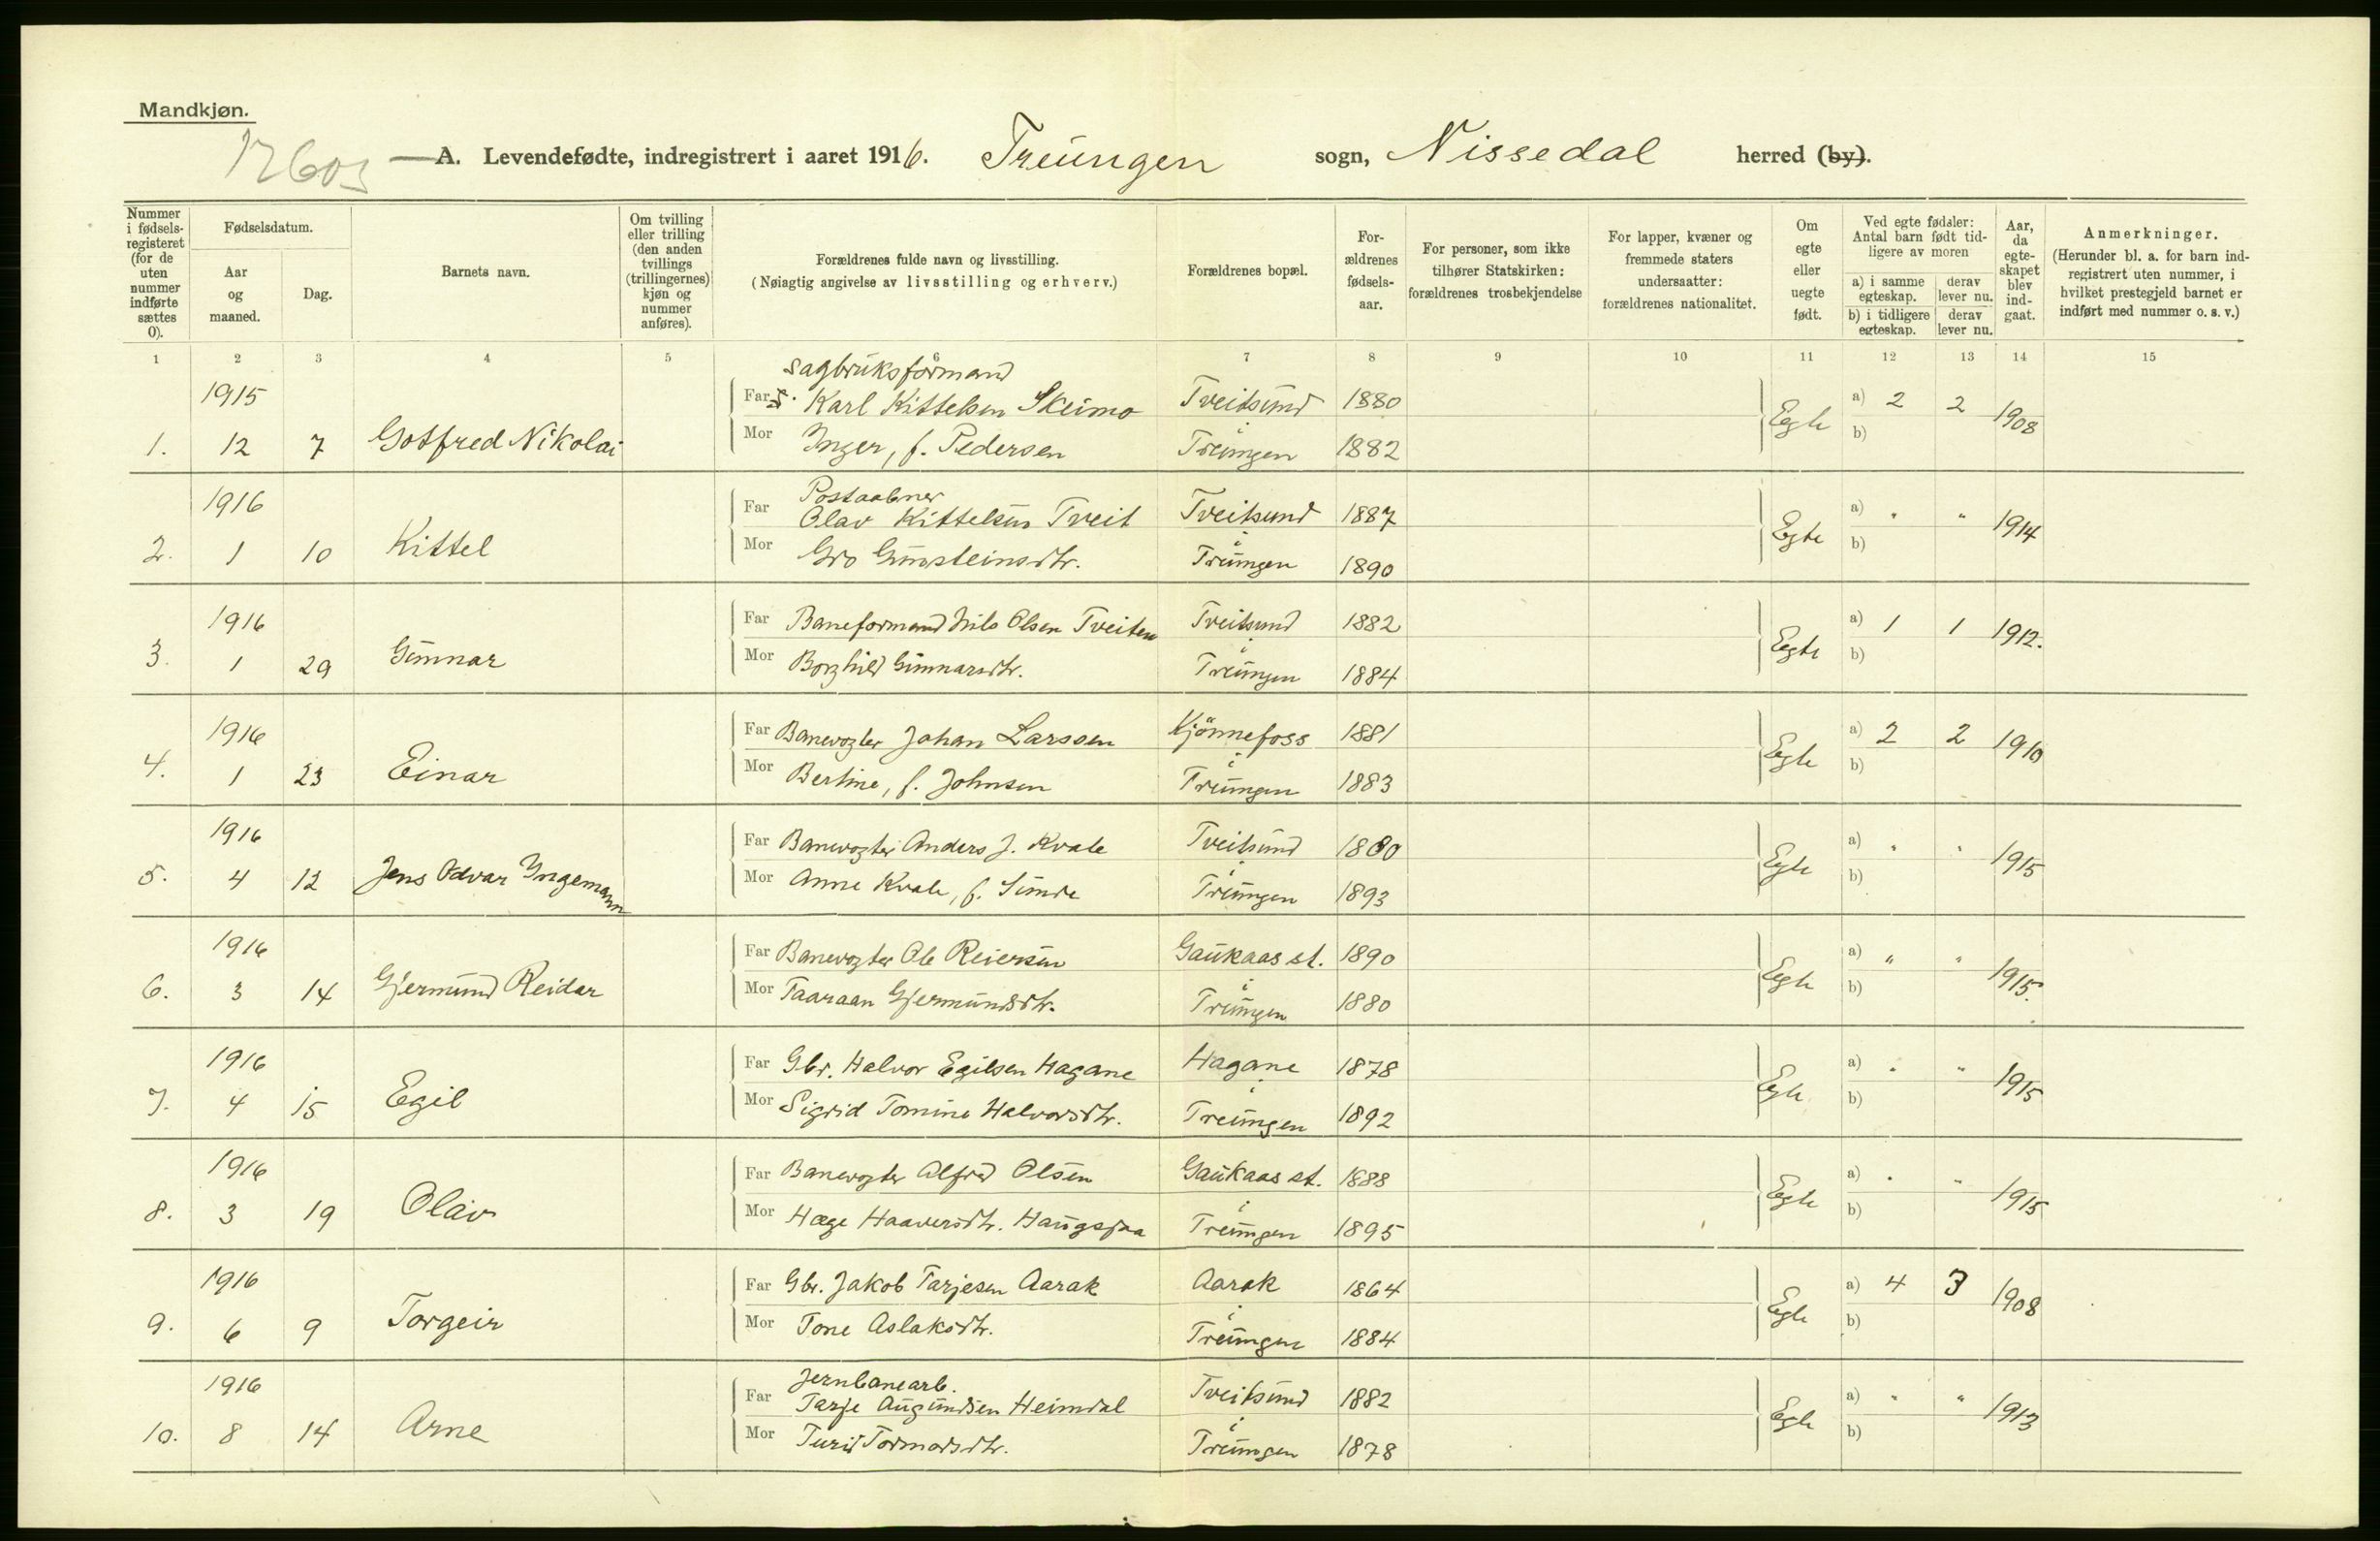 Mandkjøn.
A. Levendefødte, indregistrert i aaret 1916. Treungen sogn, Nissedal herred (by).
Nummer i fødselsregisteret (for de uten nummer indførte sættes 0).
Fødselsdatum.
Aar og maaned.
Dag.
Barnets navn.
Om tvilling eller trilling (den anden tvillings (trillingernes) kjøn og nummer anføres).
Forældrenes fulde navn og livsstilling.
(Nøiagtig angivelse av livsstilling og erhverv.)
Forældrenes bopæl.
Forældrenes fødselsaar.
For personer, som ikke tilhører Statskirken: forældrenes trosbekjendelse
For lapper, kvæner og fremmede staters undersaatter: forældrenes nationalitet.
Om egte eller uegte født.
Ved egte fødsler: Antal barn født tidligere av moren
a) i samme egteskap. derav lever nu.
b) i tidligere egteskap. derav lever nu.
Aar, da egteskapet blev indgaat.
Anmerkninger.
(Herunder bl. a. for barn indregistrert uten nummer, i hvilket prestegjeld barnet er indført med nummer o. s. v.)
1 2 3 4 5 6 7 8 9 10 11 12 13 14 15
Sagbruksformand
1915 Far Karl Kittelsen Skeimo Tveitsund 1880 a) 2 2
1. 12 7 Gotfred Nikolai Mor Inger, f. Pedersen i Treungen 1882 Egte b) 1908
Postaabner
1916 Far Olav Kittelsen Tveit Tveitsund 1887 a) " "
2. 1 10 Kittel Mor Gro Gunsteinsdtr. i Treungen 1890 Egte b) 1914
1916 Far Baneformand Nils Olsen Tveiten Tveitsund 1882 a) 1 1
3. 1 29 Gunnar Mor Borghild Gunnarsdtr. i Treungen 1884 Egte b) 1912.
1916 Far Banevogter Johan Larssen Kjönnefoss 1881 a) 2 2
4. 1 23 Einar Mor Bertine, f. Johnsen i Treungen 1883 Egte b) 1910
1916 Far Banevogter Anders J. Kvale Tveitsund 1880 a) " "
5. 4 12 Jens Odvar Ingemann Mor Anne Kvale, f. Sunde i Treungen 1893 Egte b) 1915
1916 Far Banevogter Ole Reiersen Gaukaas st. 1890 a) " "
6. 3 14 Gjermund Reidar Mor Taaraan Gjermundsdtr. i Treungen 1880 Egte b) 1915.
1916 Far Gbr. Halvor Egilsen Hagane Hagane 1878 a) " "
7. 4 15 Egil Mor Sigrid Tomine Halvorsdtr. i Treungen 1892 Egte b) 1915
1916 Far Banevogter Alfred Olsen Gaukaas st. 1888 a) " "
8. 3 19 Olav Mor Hæge Haaversdtr. Haugsjaa i Treungen 1895 Egte b) 1915
1916 Far Gbr. Jakob Tarjesen Aarak Aarak 1864 a) 4 3
9. 6 9 Torgeir Mor Tone Aslaksdtr. i Treungen 1884 Egte b) 1908
Jernbanearb.
1916 Far Tarje Augundsen Heimdal Tveitsund 1882 a) " "
10. 8 14 Arne Mor Turid Tormodsdtr. i Treungen 1878 Egte b) 1913